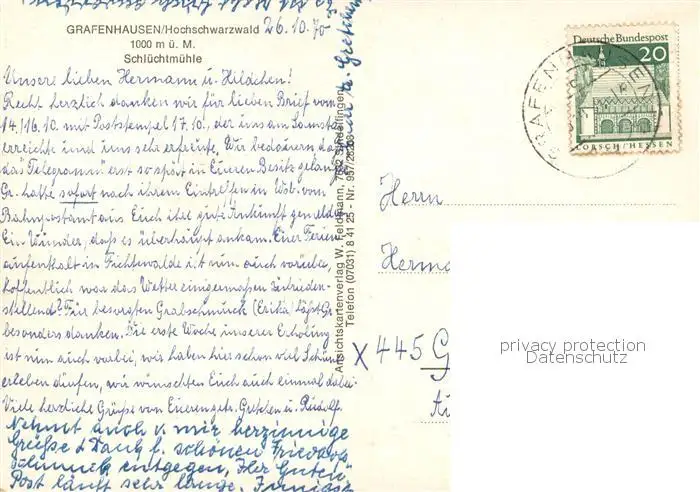 GRAFENHAUSEN/Hochschwarzwald 26.10.70
1000 m ü. M.
Schlüchtmühle
Unsere lieben Hermann u. Hildchen!
Recht herzlich danken wir für lieben Brief vom
14./16.10. mit Poststempel 17.10., der uns am Samstag
erreichte und uns sehr erfreute. Wir bedauern daß
das "Telegramm" erst so spät in Eueren Besitz gelangte
Gr. hatte sofort nach ihrem Eintreffen in Wst. vom
Bahnpostamt aus Euch ihre gute Ankunft gemeldet
Ein Wunder, daß es überhaupt ankam. Euer Ferien
aufenthalt in Fichtewalde ist nun auch vorüber,
hoffentlich war das Wetter einigermaßen zufrieden-
stellend? Für besorgten Grabschmuck (Erika) läßt Gr.
besonders danken. Die erste Woche unserer Erholung
ist nun auch vorbei, wir haben hier schon viel Schönes
erleben dürfen, wir wünschten Euch auch einmal dabei
Viele herzliche Grüße von Eueren getr. Gretchen u. Rudolf.
Nehmt auch v. mir herzinnige
Grüße & Dank f. schönen Friedhofs
schmuck entgegen, Hzl Guten
Post läuft sehr lange.
Ansichtskartenverlag W. Feldmann, 7032 Sindelfingen
Telefon (07031) 8 41 25 - Nr. 957/2620
Deutsche Bundespost
20
LORSCH/HESSEN
GRAFENHAUSEN
Herrn
Herma
x 445 G
privacy protection
Datenschutz